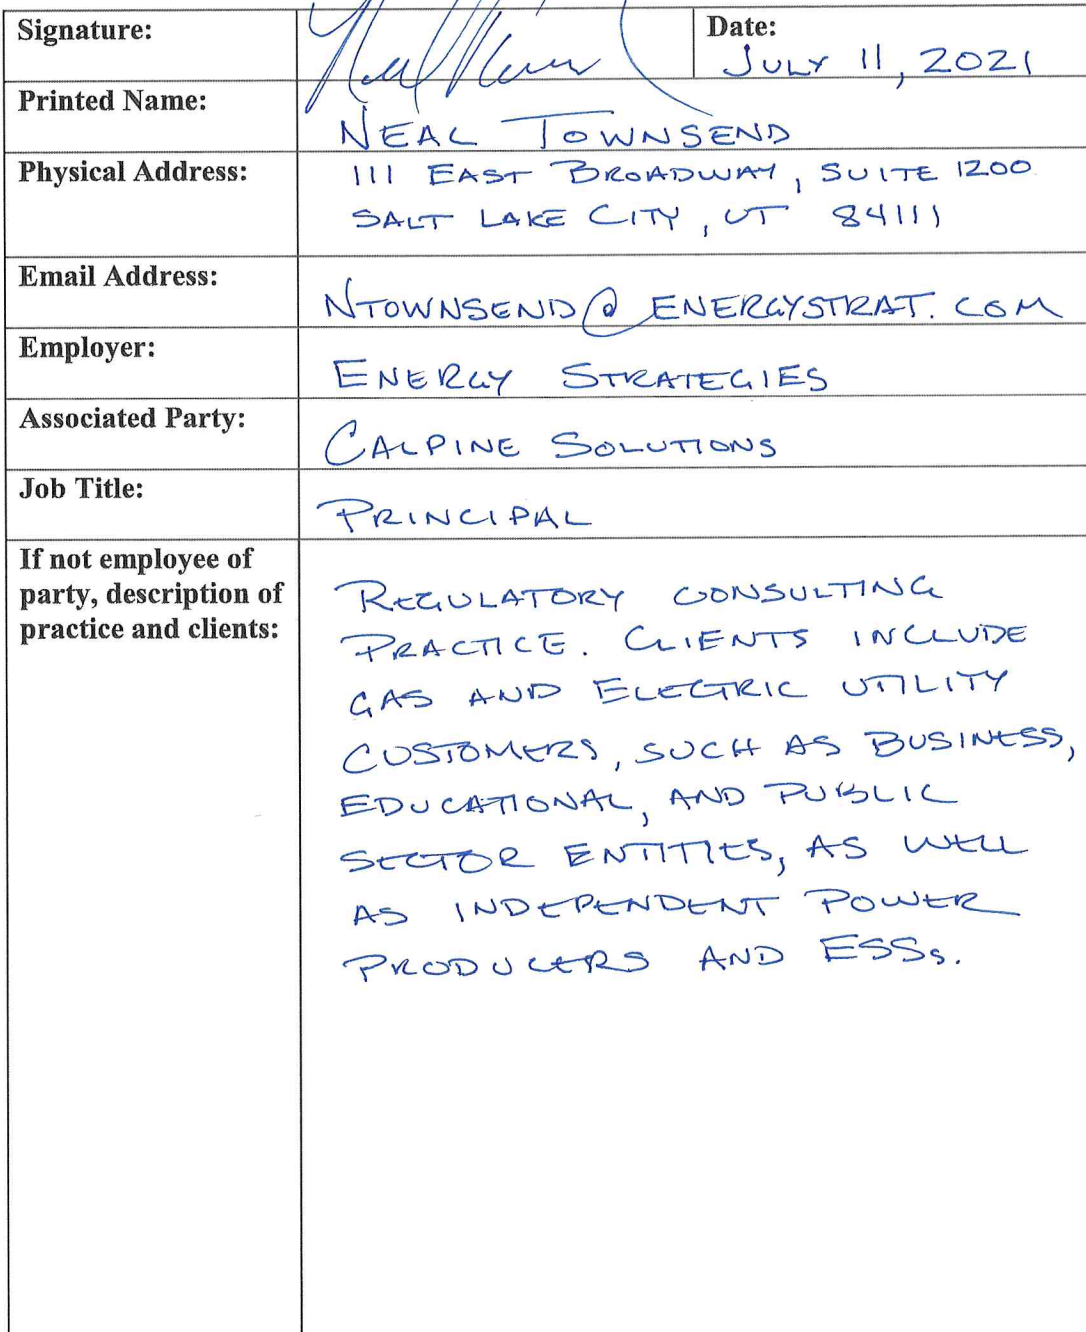 Signature:
Date:
JULY 11, 2021
Printed Name:
NEAL TOWNSEND
Physical Address:
111 EAST BROADWAY, SUITE 1200
SALT LAKE CITY, UT 84111
Email Address:
NTOWNSEND@ENERGYSTRAT.COM
Employer:
ENERGY STRATEGIES
Associated Party:
CALPINE SOLUTIONS
Job Title:
PRINCIPAL
If not employee of
party, description of
practice and clients:
REGULATORY CONSULTING
PRACTICE. CLIENTS INCLUDE
GAS AND ELECTRIC UTILITY
CUSTOMERS, SUCH AS BUSINESS,
EDUCATIONAL, AND PUBLIC
SECTOR ENTITIES, AS WELL
AS INDEPENDENT POWER
PRODUCERS AND ESSs.